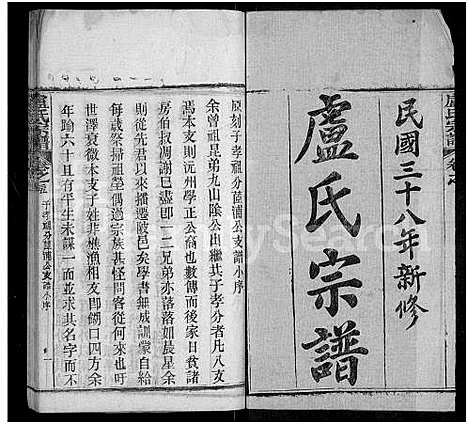 盧氏宗譜
民國三十八年新修
盧氏宗譜
原刻子孝祖分葭浦公支譜小序
余曾祖昆弟九山陰公出繼其子孝分者凡八支
焉本支則沅州學正公裔也數傳而後家日貧諸
房伯叔凋謝已盡即一二兄弟亦落落如晨星余
則從先君以來播遷
邑矣學書無成訓蒙自給
每歲祭掃祖塋偶過宗族甚怪問客從何來也吁
世澤衰微本支子姓非樵漁相友即餬口四方余
年踰六十且有平生未謀一面並求其名字而不
盧氏宗譜
子孝祖分葭浦公支譜小序
一
FamilySearch